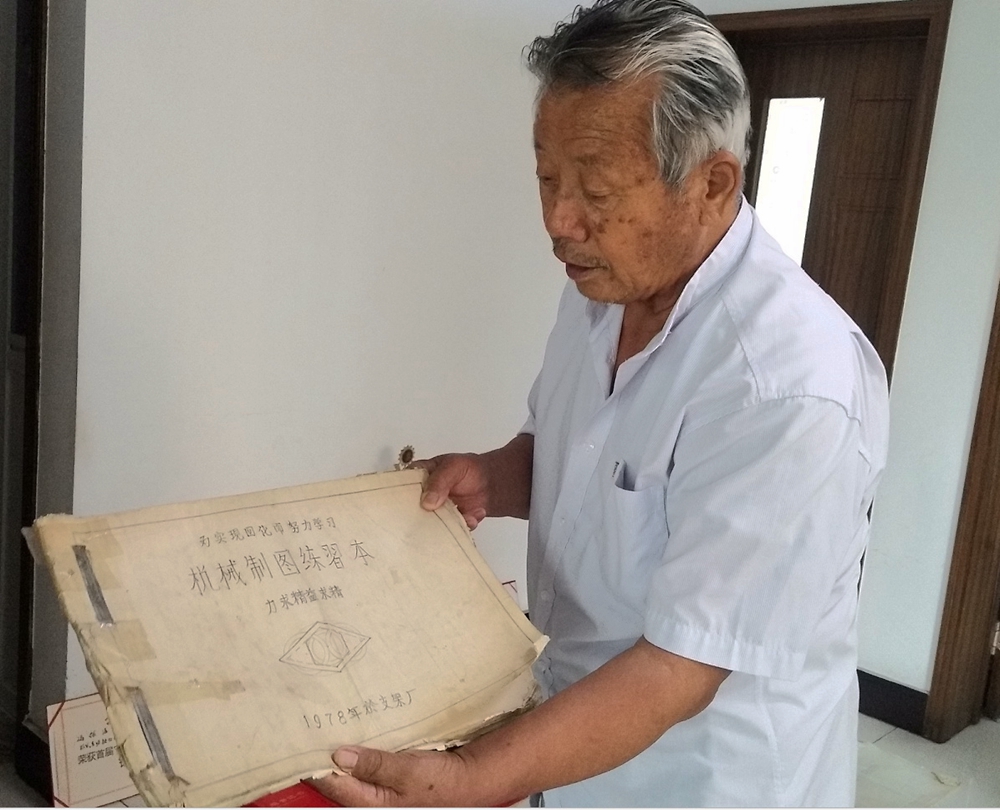 为实现四化而努力学习
机械制图练習本
力求精益求精
1978年绘支架厂
荣获首届